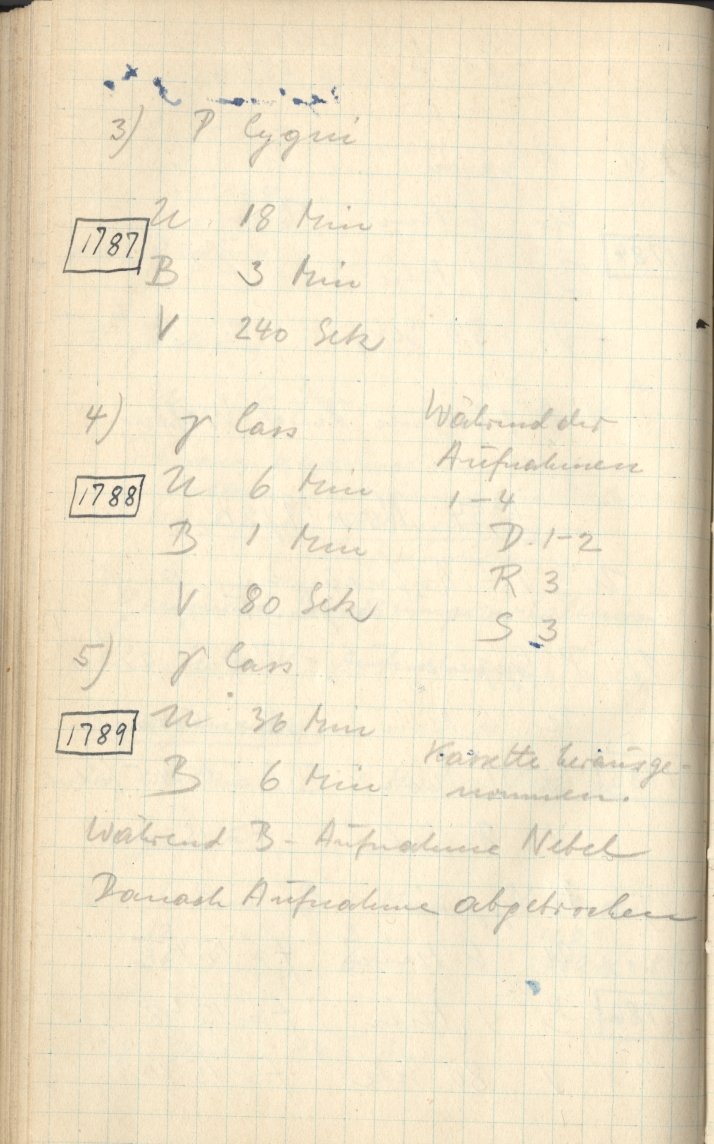 3) P Cygni
U 18 Min
1787
B 3 Min
V 240 Sek
4) γ Cass
Während der
Aufnahmen
1-4
D. 1-2
R 3
S 3
1788
U 6 Min
B 1 Min
V 80 Sek
5) γ Cass
1789
U 36 Min
B 6 Min
Kassette herausge-
nommen.
Während B-Aufnahme Nebel
Danach Aufnahme abgebrochen